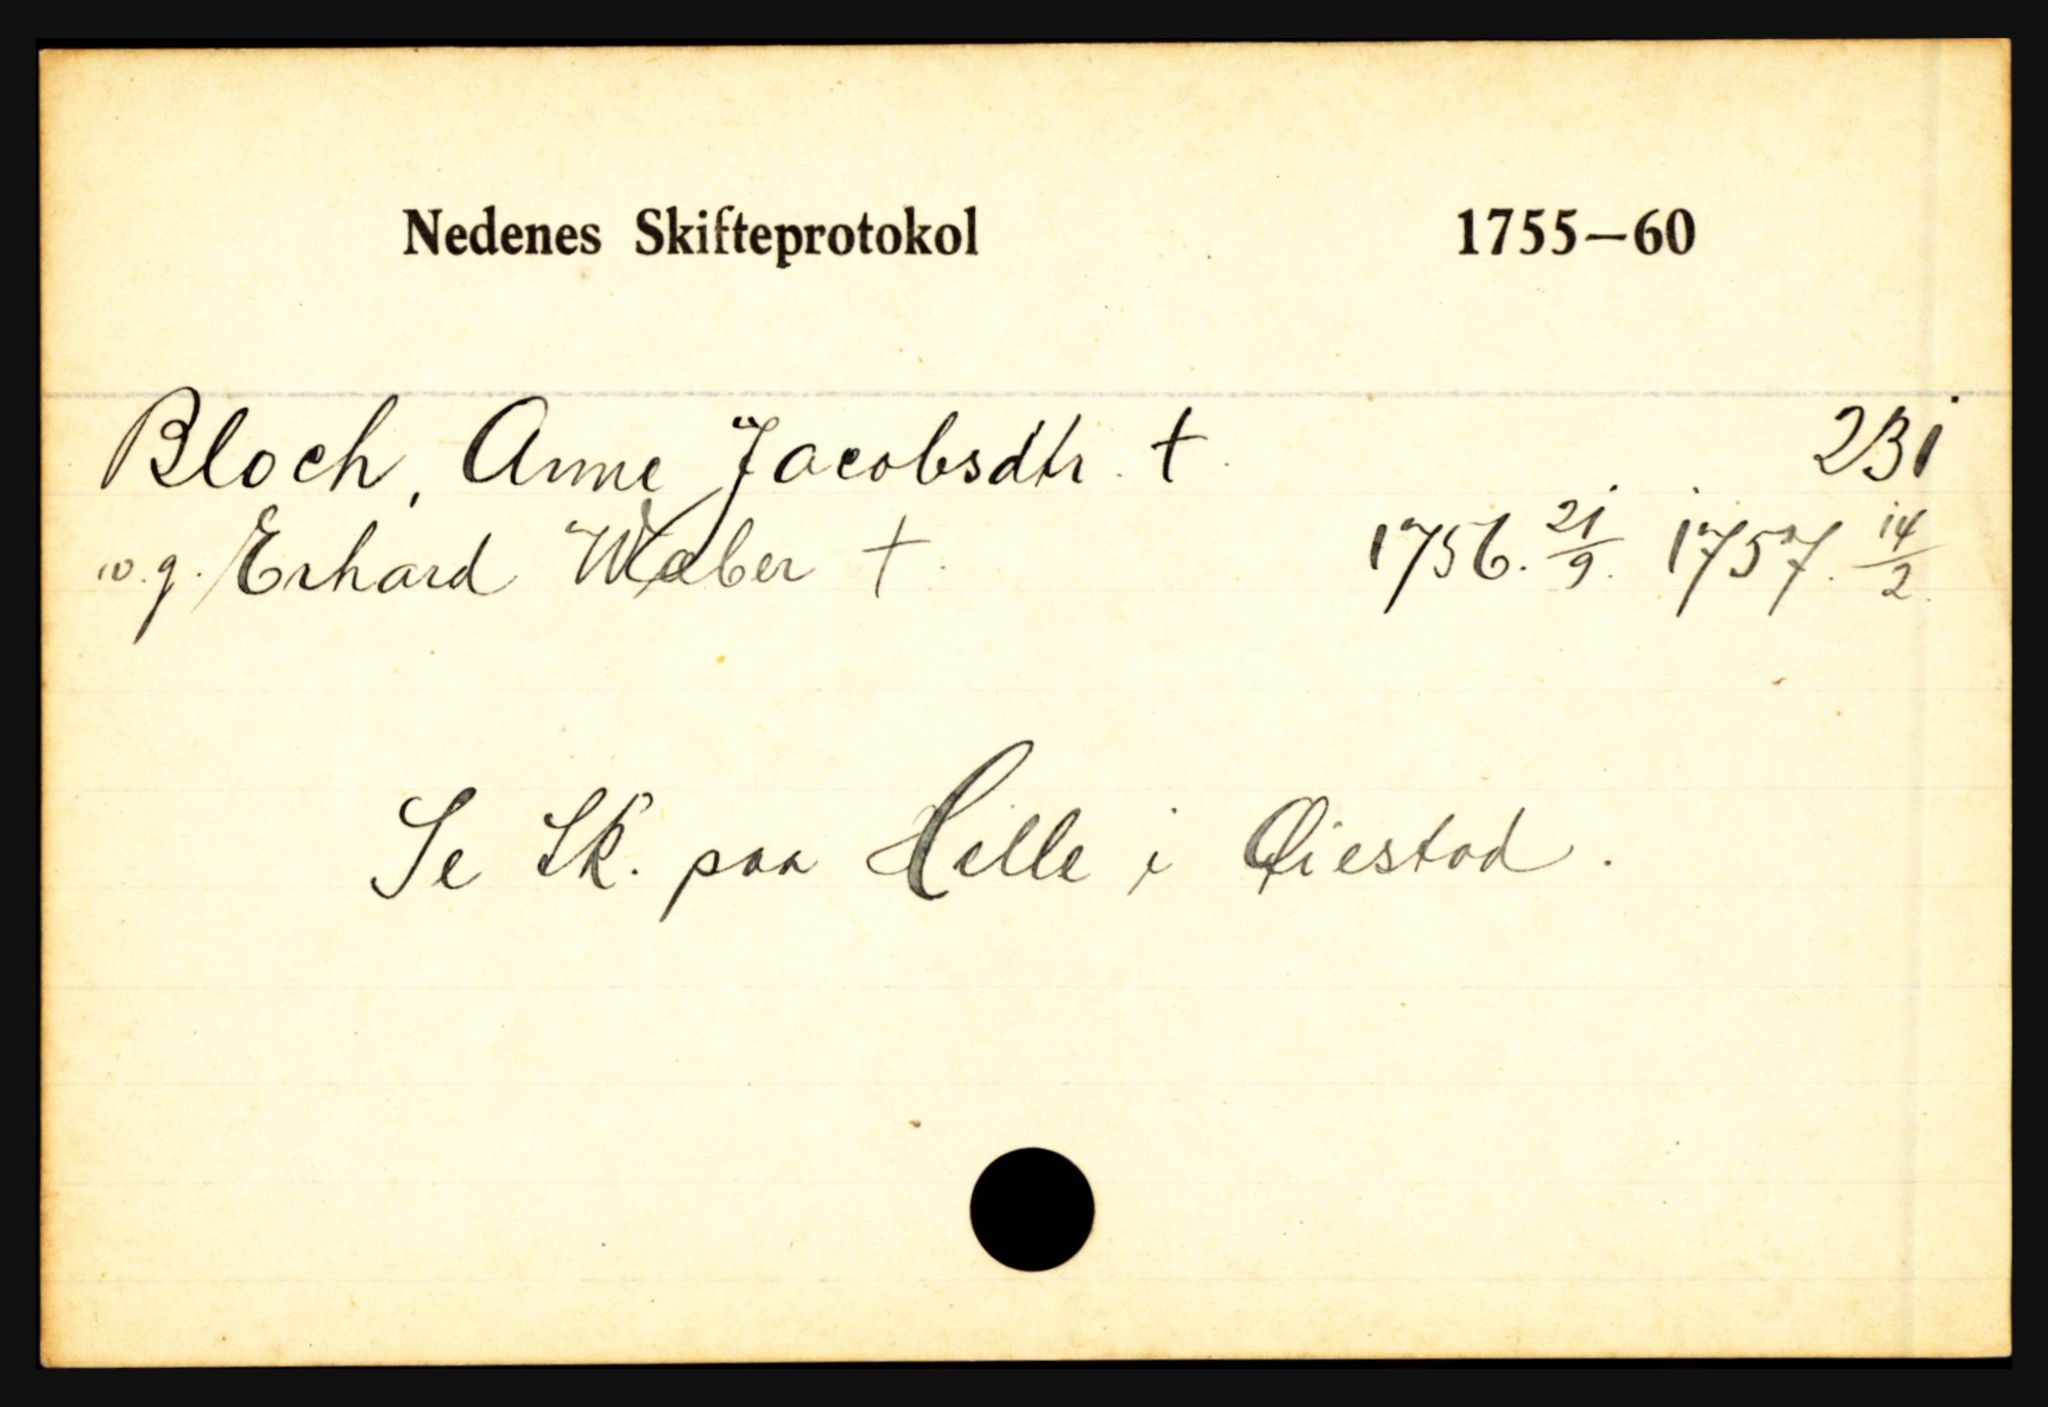 Nedenes Skifteprotokol 1755—60
Bloch, Anne Jacobsdtr. † 231
v. g. Erhard Weber † 1756. 21/9. 1757. 14/2.
Se Sk. paa Helle i Øiestad.